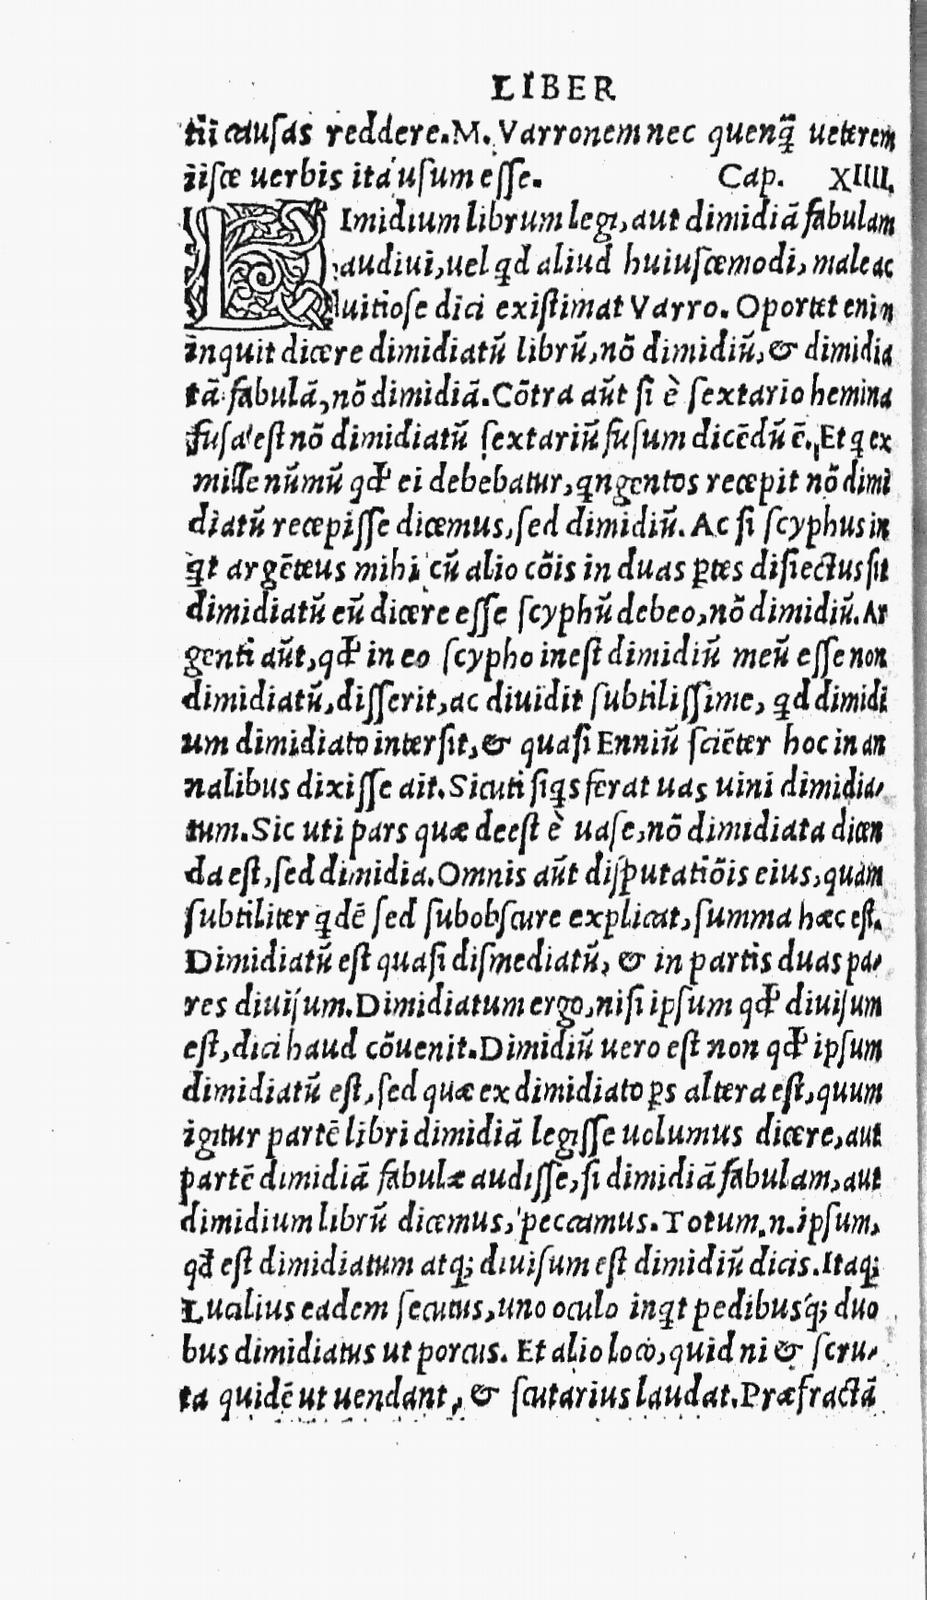 LIBER
tiĩ causas reddere. M. Varronem nec quenq̃ ueterem
iisce uerbis ita usum esse. Cap. XIIII.
Imidium librum legi, aut dimidiã fabulam
audiui, uel qd aliud huiuscemodi, male ac
uitiose dici existimat Varro. Oportet enim
inquit dicere dimidiatũ librũ, nõ dimidiũ, & dimidia
tã fabulã, nõ dimidiã. Cõtra aũt si è sextario hemina
fusa est nõ dimidiatũ sextariũ fusum dicẽdũ ẽ. Et q ex
mille nũmũ qd ei debebatur, qngentos recepit nõ dimi
diatũ recepisse dicemus, sed dimidiũ. Ac si scyphus in
qt argẽteus mihi cũ alio cõis in duas ꝑtes disiectus sit
dimidiatũ eũ dicere esse scyphũ debeo, nõ dimidiũ. Ar
genti aũt, qd in eo scypho inest dimidiũ meũ esse non
dimidiatũ, disserit, ac diuidit subtilissime, qd dimidi
um dimidiato intersit, & quasi Enniũ sciẽter hoc in an
nalibus dixisse ait. Sicuti siqs ferat uas uini dimidia-
tum. Sic uti pars quæ deest è uase, nõ dimidiata dicen
da est, sed dimidia. Omnis aũt disputatiõis eius, quam
subtiliter qdẽ sed subobscure explicat, summa hæc est.
Dimidiatũ est quasi dismediatũ, & in partis duas pa-
res diuisum. Dimidiatum ergo, nisi ipsum qd diuisum
est, dici haud cõuenit. Dimidiũ uero est non qd ipsum
dimidiatũ est, sed quæ ex dimidiato ꝑs altera est, quum
igitur partẽ libri dimidiã legisse uolumus dicere, aut
partẽ dimidiã fabulæ audisse, si dimidiã fabulam, aut
dimidium librũ dicemus, peccamus. Totum .n. ipsum,
qd est dimidiatum atq; diuisum est dimidiũ dicis. Itaq;
Lucilius eadem secutus, uno oculo inqt pedibusq; duo
bus dimidiatus ut porcus. Et alio loco, quid ni & scru-
ta quidẽ ut uendant, & scutarius laudat. Præfractã